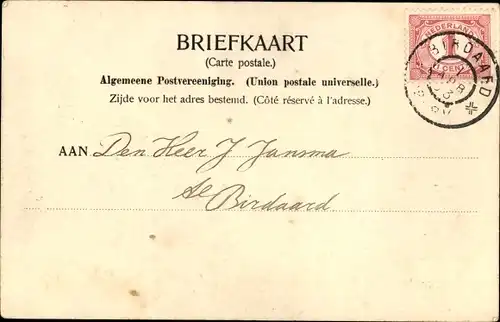 BRIEFKAART
(Carte postale.)
Algemeene Postvereeniging. (Union postale universelle.)
Zijde voor het adres bestemd. (Côté réservé à l'adresse.)
NEDERLAND
1
CENT
BIRDAARD
AAN Den Heer J Jansma
te Birdaard